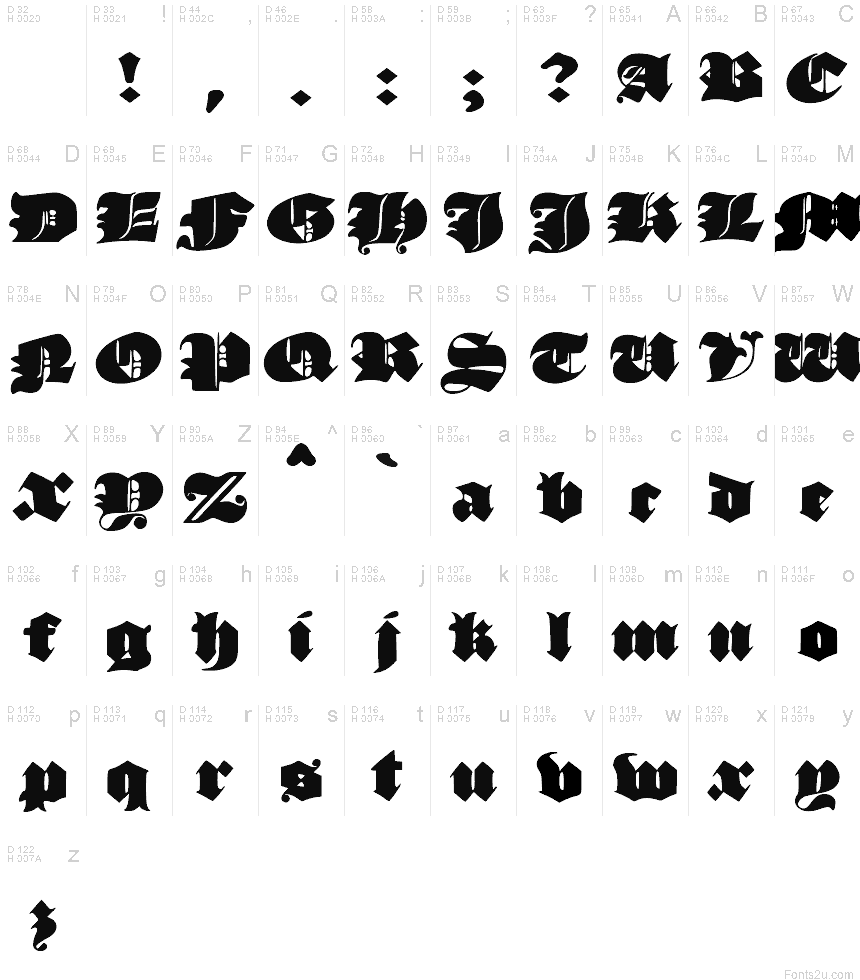 D 32 D 33 ! D 44 , D 46 . D 58 : D 59 ; D 63 ? D 65 A D 66 B D 67 C
H 0020 H 0021 H 002C H 002E H 003A H 003B H 003F H 0041 H 0042 H 0043
! , . : ; ? A B C
D 68 D D 69 E D 70 F D 71 G D 72 H D 73 I D 74 J D 75 K D 76 L D 77 M
H 0044 H 0045 H 0046 H 0047 H 0048 H 0049 H 004A H 004B H 004C H 004D
D E F G H I J K L M
D 78 N D 79 O D 80 P D 81 Q D 82 R D 83 S D 84 T D 85 U D 86 V D 87 W
H 004E H 004F H 0050 H 0051 H 0052 H 0053 H 0054 H 0055 H 0056 H 0057
N O P Q R S T U V W
D 88 X D 89 Y D 90 Z D 94 ^ D 96 ` D 97 a D 98 b D 99 c D 100 d D 101 e
H 0058 H 0059 H 005A H 005E H 0060 H 0061 H 0062 H 0063 H 0064 H 0065
X Y Z ^ ` a b c d e
D 102 f D 103 g D 104 h D 105 i D 106 j D 107 k D 108 l D 109 m D 110 n D 111 o
H 0066 H 0067 H 0068 H 0069 H 006A H 006B H 006C H 006D H 006E H 006F
f g h i j k l m n o
D 112 p D 113 q D 114 r D 115 s D 116 t D 117 u D 118 v D 119 w D 120 x D 121 y
H 0070 H 0071 H 0072 H 0073 H 0074 H 0075 H 0076 H 0077 H 0078 H 0079
p q r s t u v w x y
D 122 z
H 007A
z
Fonts2u.com